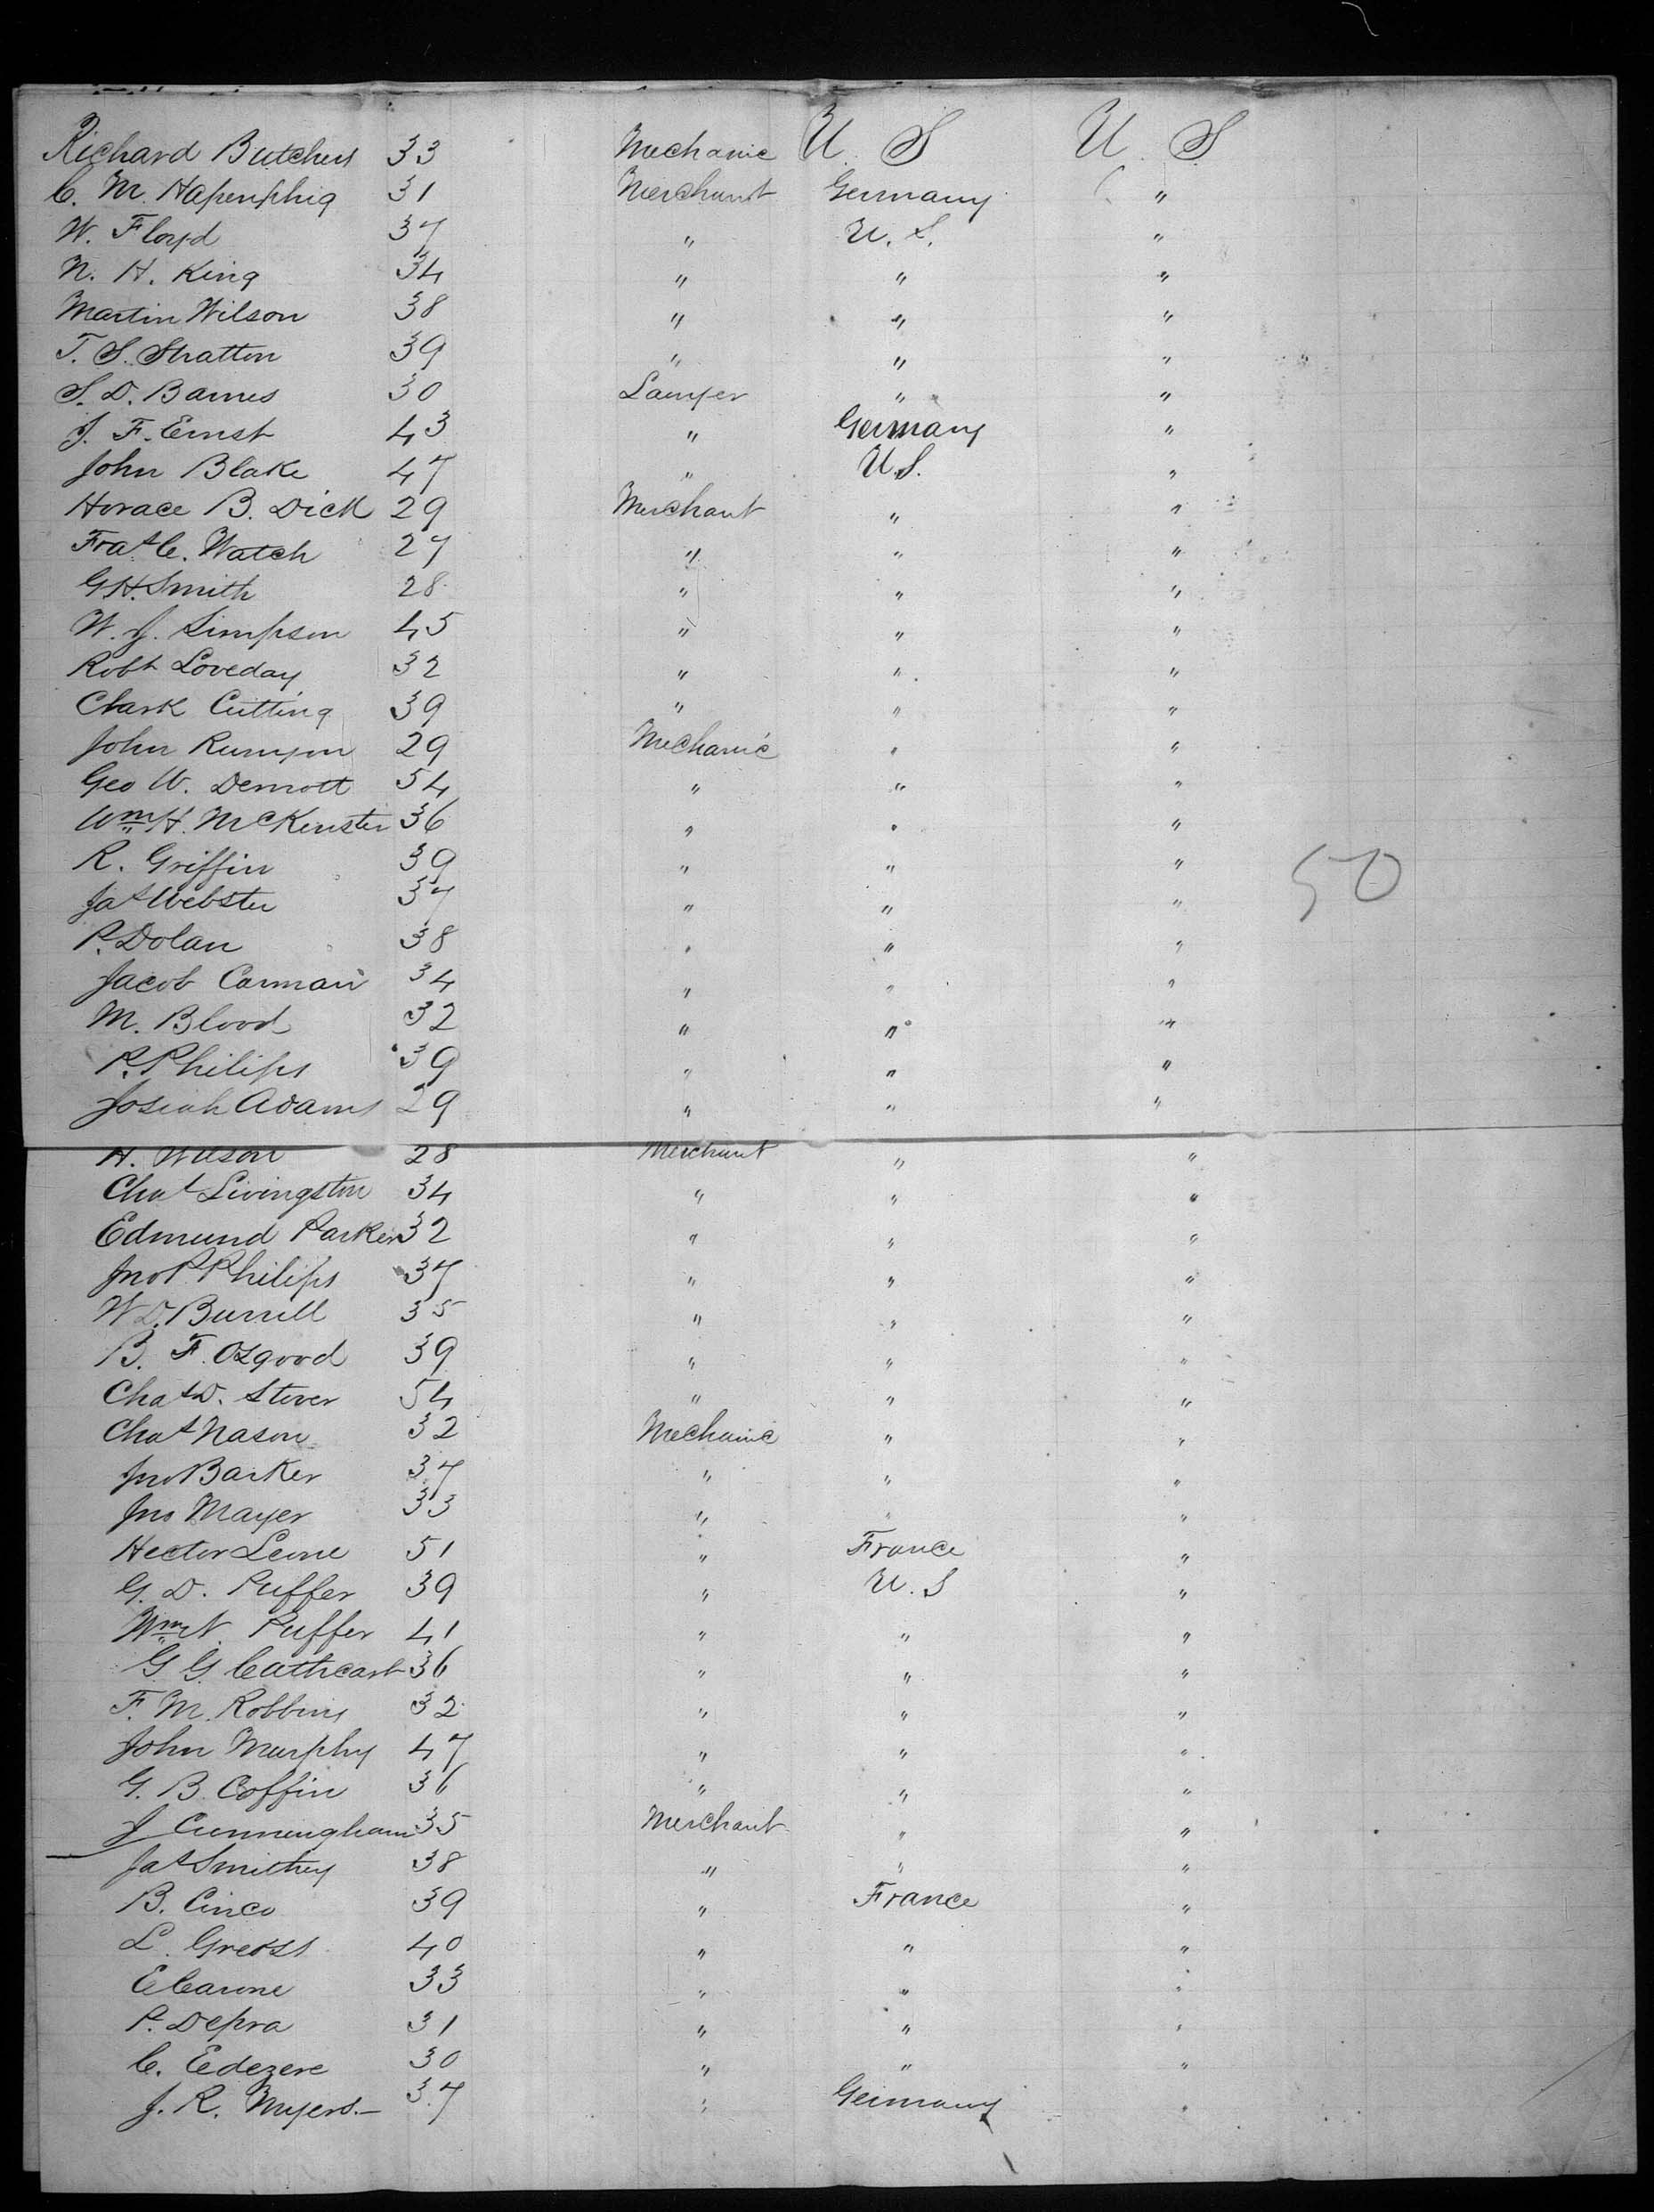 Richard Butchers 33 Mechanic U. S U. S
C. M. Hapenphig 31 Merchant Germany "
W. Floyd 37 " U. S. "
N. H. King 34 " " "
Martin Wilson 38 " " "
T. S. Stratton 39 " " "
S. D. Barnes 30 Lawyer " "
J. F. Ernst 43 " Germany "
John Blake 47 " U.S. "
Horace B. Dick 29 Merchant " "
Fras C. Watch 27 " " "
G H. Smith 28 " " "
W. J. Simpson 45 " " "
Robt Loveday 32 " " "
Clark Cutting 39 " " "
John Runyon 29 Mechanic " "
Geo W. Demott 54 " " "
Wm H. McKenster 36 " " "
R. Griffin 39 " " "
Jas Webster 37 " " " 50
P. Dolan 38 " " "
Jacob Carman 34 " " "
M. Blood 32 " " "
P. Philips 39 " " "
Josiah Adams 29 " " "
H. Wilson 28 Merchant " "
Chas Livingston 34 " " "
Edmund Parker 32 " " "
Jno P. Philips 37 " " "
W D. Burrell 35 " " "
B. F. Osgood 39 " " "
Chas D. Stover 54 " " "
Chas Nason 32 Mechanic " "
Jno Barker 37 " " "
Jno Mayer 33 " " "
Hector Leone 51 " France "
G. D. Puffer 39 " U. S "
Wm N. Puffer 41 " " "
G G. Cathcart 36 " " "
F. M. Robbins 32 " " "
John Murphy 47 " " "
G. B. Coffin 36 " " "
J Cunningham 35 Merchant " "
Jas Smithey 38 " " "
B. Cinco 39 " France "
L. Greoss 40 " " "
E Carone 33 " " "
P. Depra 31 " " "
C. Edezere 30 " " "
J. R. Myers.— 37 " Germany "